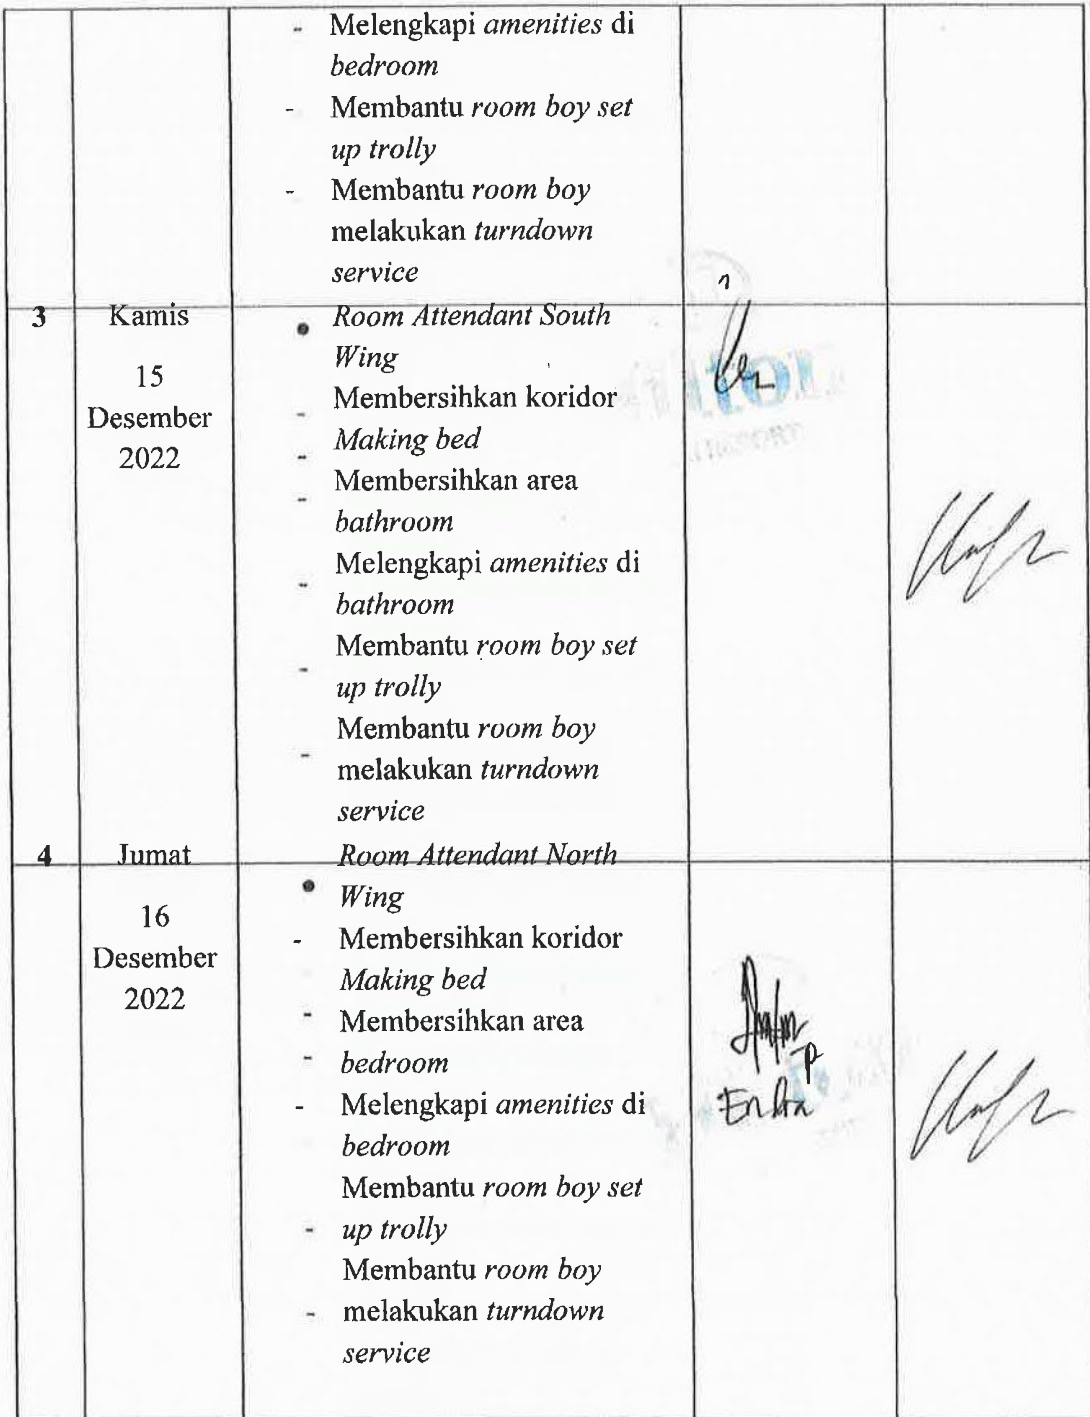 - Melengkapi amenities di
bedroom
- Membantu room boy set
up trolly
- Membantu room boy
melakukan turndown
service
3
Kamis
15
Desember
2022
• Room Attendant South
Wing
- Membersihkan koridor
- Making bed
- Membersihkan area
bathroom
- Melengkapi amenities di
bathroom
- Membantu room boy set
up trolly
- Membantu room boy
melakukan turndown
service
4
Jumat
16
Desember
2022
• Room Attendant North
Wing
- Membersihkan koridor
Making bed
- Membersihkan area
- bedroom
- Melengkapi amenities di
bedroom
Membantu room boy set
- up trolly
Membantu room boy
- melakukan turndown
service